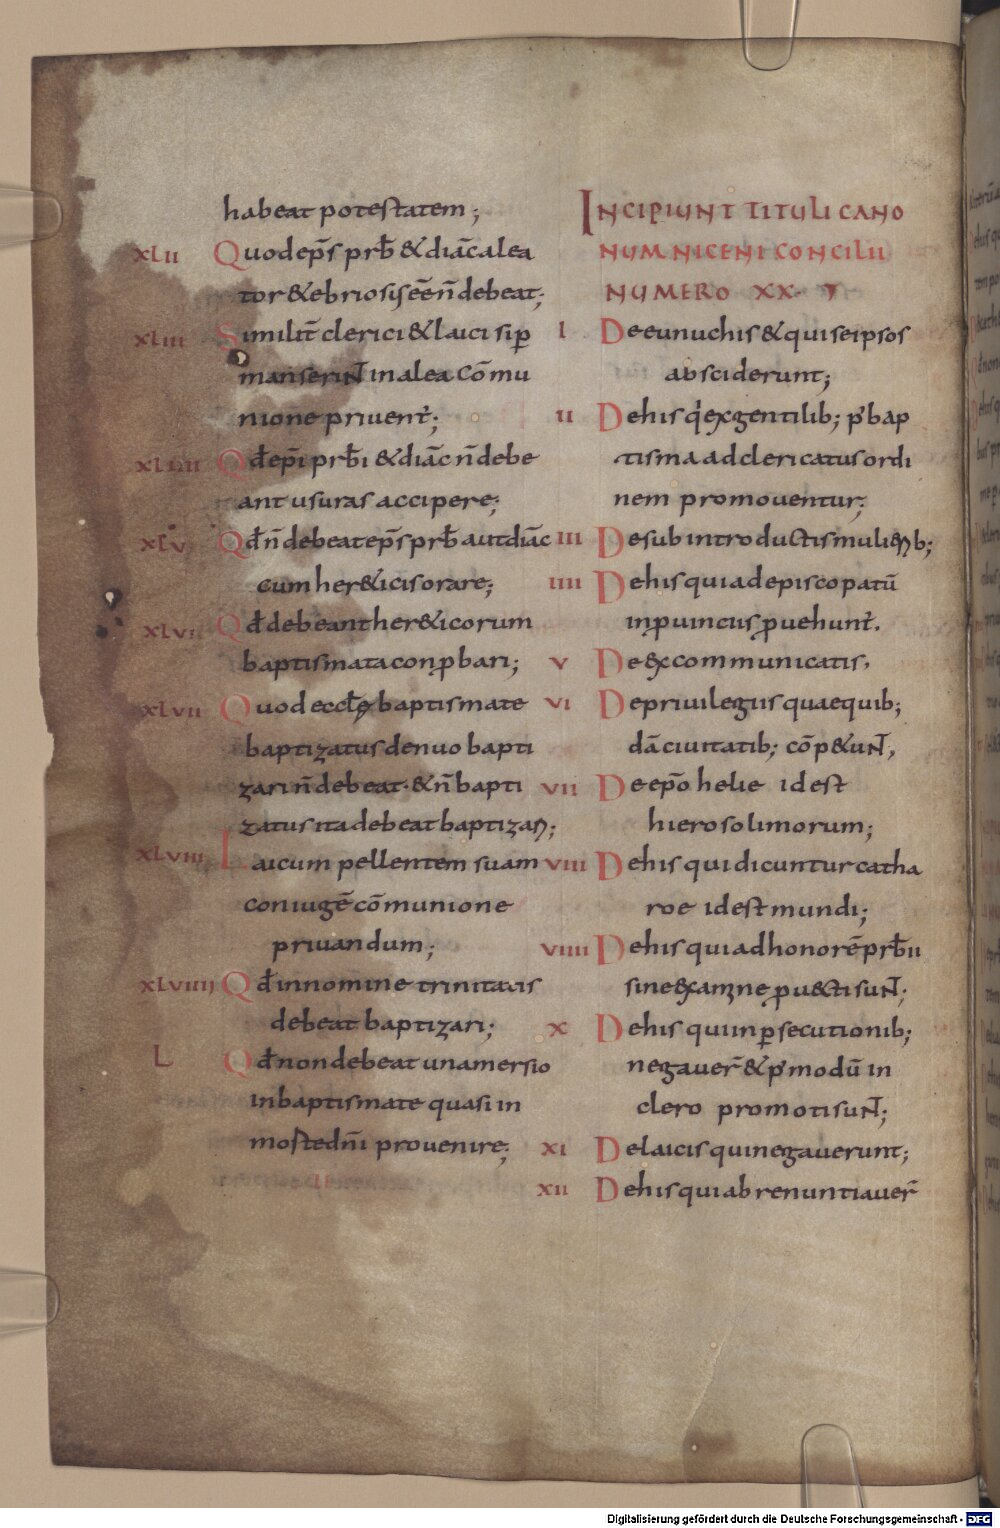 habeat potestatem;
XLII Quod ep̄s prb̄ & diāc alea
tor & ebriosis eē n̄ debeat;
XLIII Similit̄ clerici & laici si ꝑ
manserinT in alea cōmu
nione privent̄;
XLIIII Qd̄ ep̄i prb̄i & diāc n̄ debe
ant usuras accipere;
XLV Qd̄ n̄ debeat ep̄s prb̄ aut diāc
cum her&icis orare;
XLVI Qd̄ debeant her&icorum
baptismata conꝓbari;
XLVII Quod eccłę baptismate
baptizatus denuo bapti
zari n̄ debeat. & n̄ bapti
zatus ita debeat baptizaꝶ;
XLVIII Laicum pellentem suam
coniugē cōmunione
privandum;
XLVIIII Qd̄ in nomine trinitatis
debeat baptizari;
L Qd̄ non debeat una mersio
in baptismate quasi in
mostedn̄i provenire;
INCIPIUNT TITULI CANO
NUM NICENI CONCILII
NUMERO XX
I De eunuchis & qui seipsos
absciderunt;
II De his q'i ex gentilib; p' bap
tisma ad clericatus ordi
nem promoventur;
III De subintroductis mulieꝶb;
IIII De his qui ad episcopatū
in ꝓuinciis ꝓuehunt̄.
V De excommunicatis,
VI De privilegiis quae quib;
dā civitatib; cōp&uNT,
VII De ep̄o helie id est
hierosolimorum;
VIII De his qui dicuntur catha
roe id est mundi;
VIIII De his qui ad honorē prb̄ii
sine examine ꝓuecti suNT;
X De his qui in ꝑsecutionib;
negaver̄ & p' modū in
clero promoti suNT;
XI De laicis qui negaverunt;
XII De his qui abrenuntiaver̄
Digitalisierung gefördert durch die Deutsche Forschungsgemeinschaft - DFG